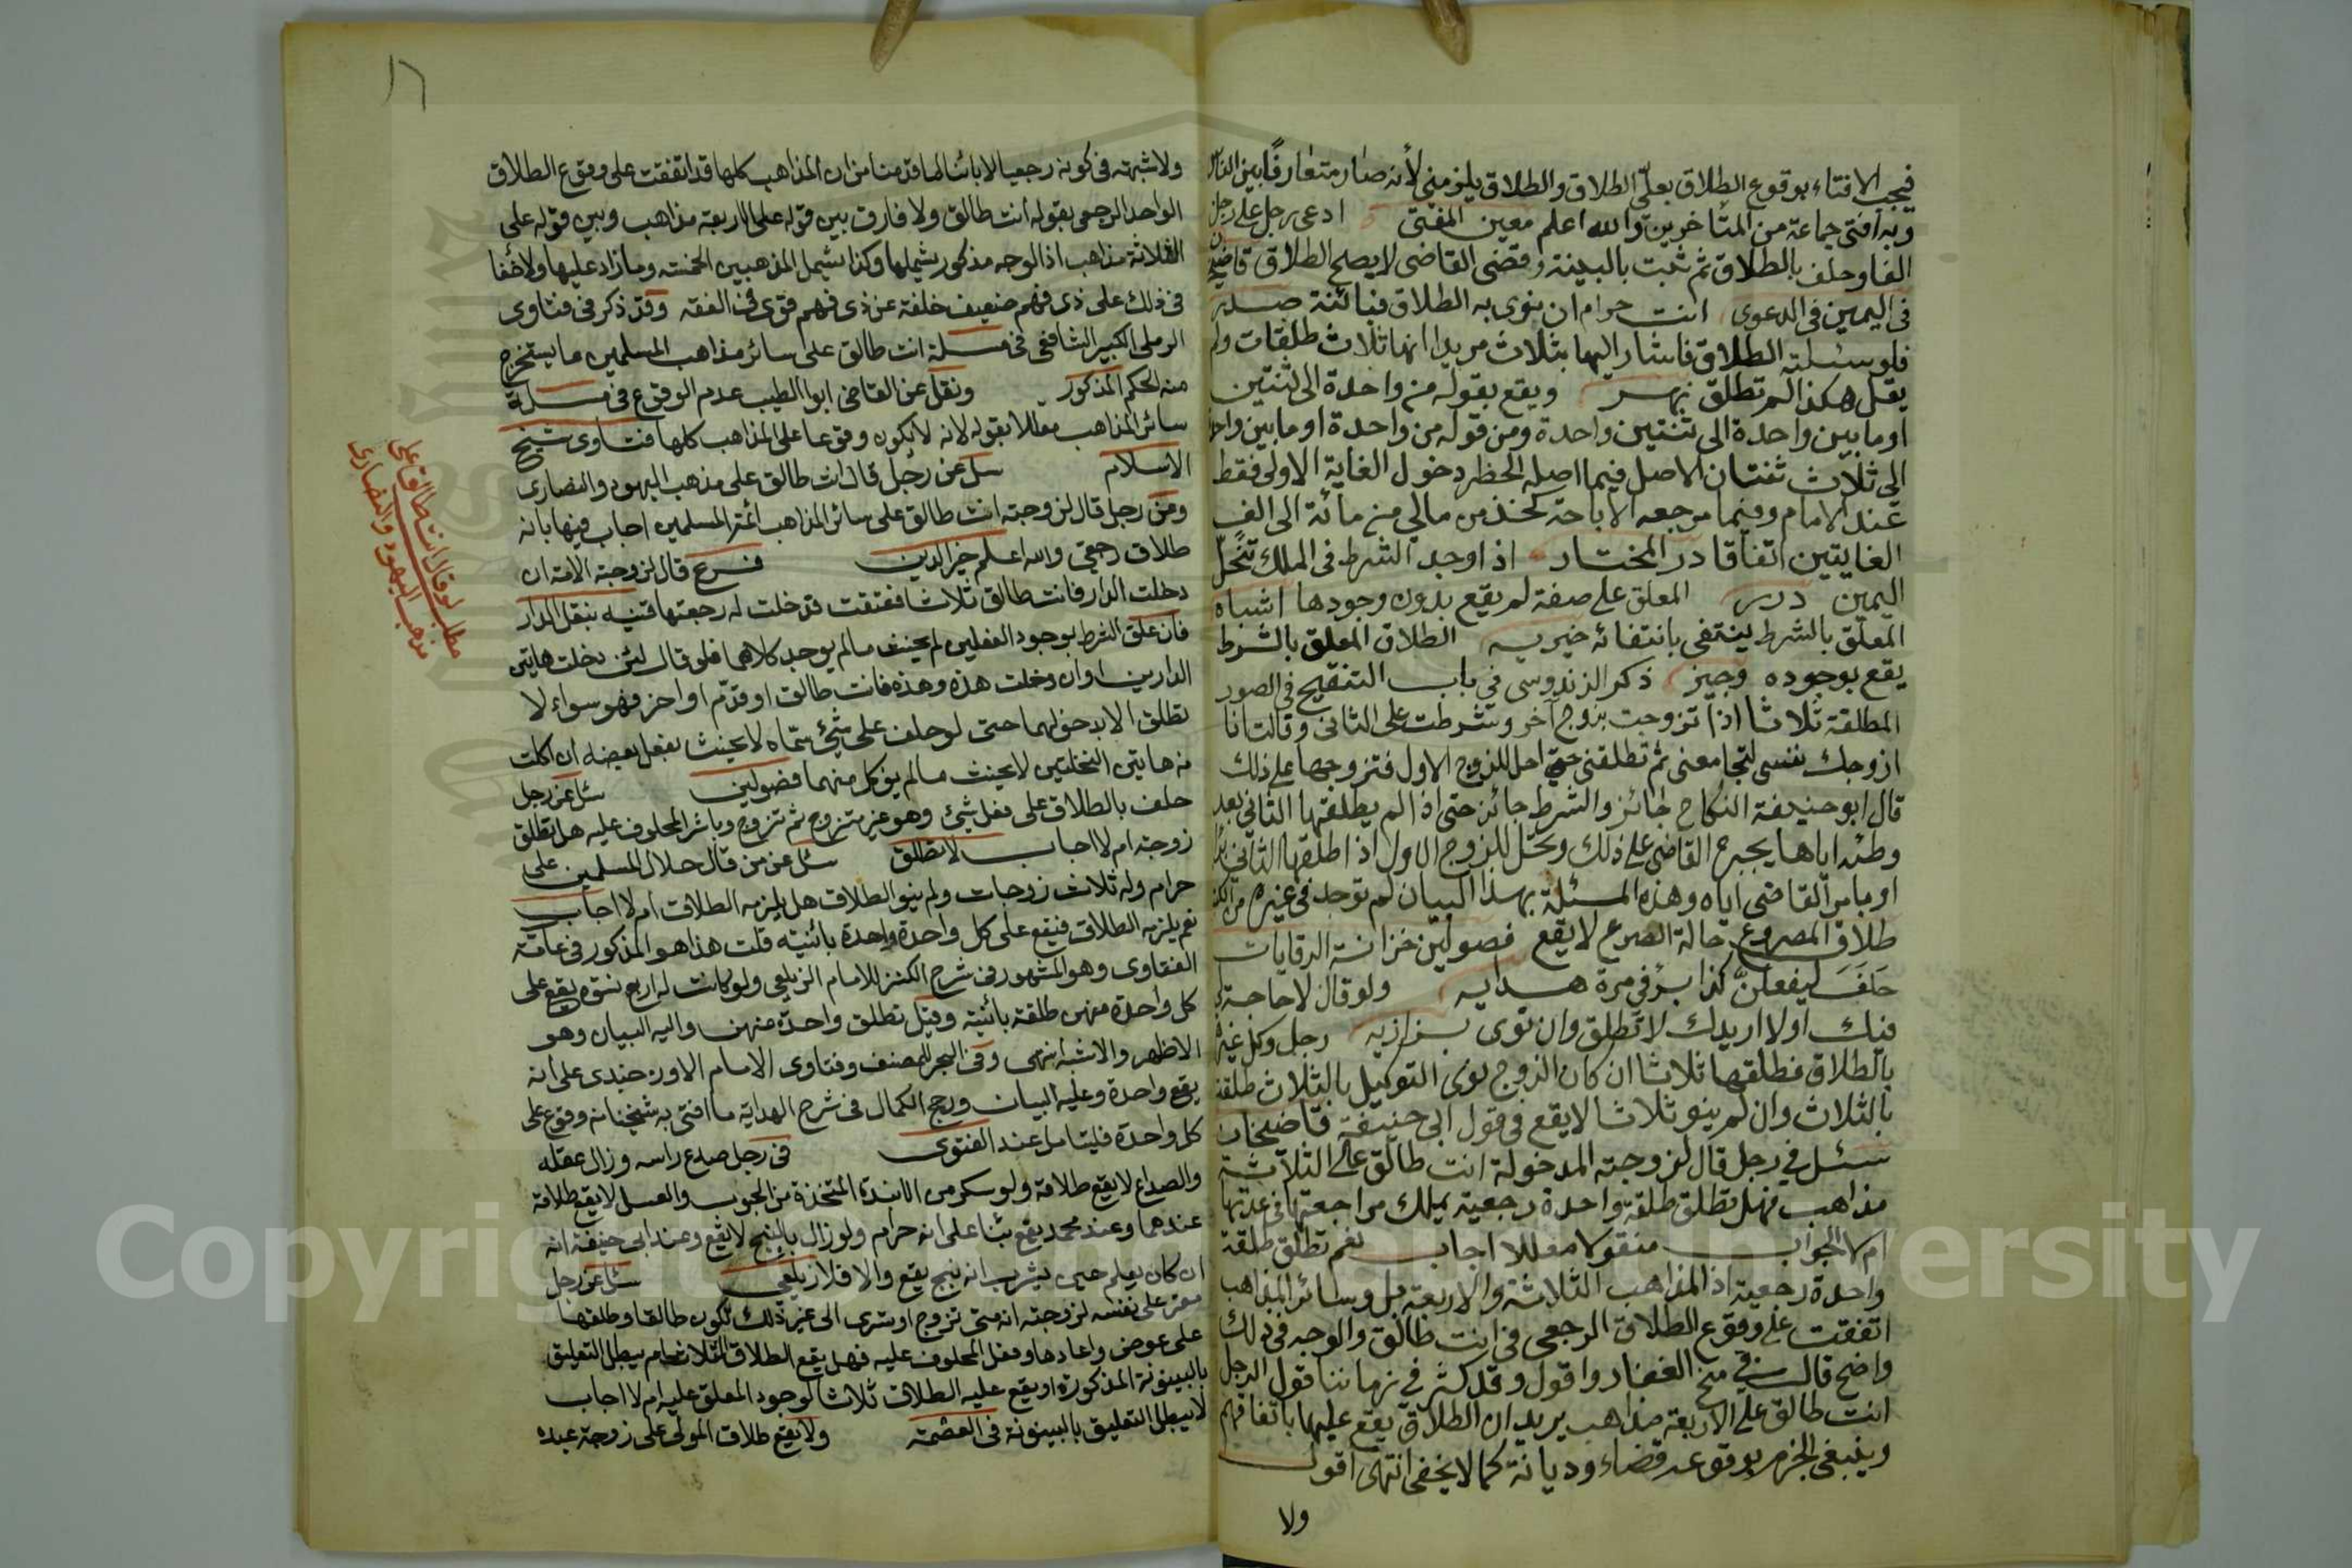 فيجب الافتاء بوقوع الطلاق بعليّ الطلاق والطلاق يلزمني لأنه صار متعارفًا بين الناس
وبه أفتى جماعة من المتأخرين والله اعلم معين المفتى ادعى رجل على رجل
الفا وحلف بالطلاق ثم ثبت بالبينة وقضى القاضى لا يصلح الطلاق قاضيخان
فى اليمين فى الدعوى انت حرام ان نوى به الطلاق فبائنة صدر
فلو سئلته الطلاق فاشار اليها بثلاث مريدا انها ثلاث طلقات ولم
يقل هكذا لم تطلق نهر ويقع بقوله من واحدة الى ثنتين
او ما بين واحدة الى ثنتين واحدة ومن قوله من واحدة او ما بين واحدة
الى ثلاث ثنتان الاصل فيما اصله الحظر دخول الغاية الاولى فقط
عند الامام وفيما مرجعه الاباحة كخذ من مالي من مائة الى الف
الغايتين اتفاقا در المختار اذا وجد الشرط فى الملك تنحل
اليمين درر المعلق على صفة لم يقع بدون وجودها اشباه
المعلق بالشرط ينتفى بانتفائه خيريه الطلاق المعلق بالشرط
يقع بوجوده وجيز ذكر الزندوسى في باب التنقيح فى الصور
المطلقة ثلاثا اذا تزوجت بزوج آخر وشرطت على الثانى وقالت انا
ازوجك نفسى لتجامعنى ثم تطلقنى حتى احل للزوج الاول فتزوجها على ذلك
قال ابو حنيفة النكاح جائز والشرط جائز حتى اذا لم يطلقها الثانى بعد
وطئه اياها يجبره القاضى على ذلك وتحل للزوج الاول اذا طلقها الثانى
او بامر القاضى اياه وهذه المسئلة بهذا البيان لم توجد فى غيره من الكتب
طلاق المصروع حالة الصرع لا يقع فصولين خزانة الروايات
حَلَفَ ليفعلنّ كذا برّ في مرة هدايه ولو قال لا حاجة لي
فيك او لا اريدك لا تطلق وان نوى بزازيه رجل وكل غيره
بالطلاق فطلقها ثلاثا ان كان الزوج نوى التوكيل بالثلاث طلقت
بالثلاث وان لم ينو ثلاثا لا يقع في قول ابى حنيفة قاضيخان
سئل في رجل قال لزوجته المدخولة انت طالق على الثلاثة
مذاهب فهل تطلق طلقة واحدة رجعية يملك مراجعتها فى عدتها
ام لا الجواب منقولا مفصلا اجاب نعم تطلق طلقة
واحدة رجعية اذ المذاهب الثلاثة والاربعة بل وسائر المذاهب
اتفقت على وقوع الطلاق الرجعى فى انت طالق والوجه فى ذلك
واضح قال في منح الغفار واقول وقد كثر في زماننا قول الرجل
انت طالق على الاربعة مذاهب يريد ان الطلاق يقع عليها باتفاقهم
وينبغى الجزم بوقوعه قضاء وديانة كما لا يخفى انتهى اقول
ولا
١٦
ولا شبهة فى كونه رجعيا لا بائنا لما قدمنا من ان المذاهب كلها قد اتفقت على وقوع الطلاق
الواحد الرجعى بقوله انت طالق ولا فارق بين قوله على الاربعة مذاهب وبين قوله على
الثلاثة مذاهب اذ الوجه مذكور يشملها وكذا يشمل المذهبين الخمسة وما زاد عليها ولا خفا
فى ذلك على ذى فهم ضعيف خلفة عن ذى فهم قوى فى الفقه وقد ذكر فى فتاوى
الرملى الكبير الشافعى فى مسئلة انت طالق على سائر مذاهب المسلمين ما يستخرج
منه الحكم المذكور ونقل عن القاضى ابو الطيب عدم الوقوع فى مسئلة
سائر المذاهب معللا بقوله لانه لا يكون وقوعا على المذاهب كلها فتاوى شيخ
الاسلام سئل عن رجل قال انت طالق على مذهب اليهود والنصارى
ومن رجل قال لزوجته انت طالق على سائر المذاهب ائمة المسلمين اجاب فيها بانه
طلاق رجعى والله اعلم خير الدين فرع قال لزوجته الامة ان
دخلت الدار فانت طالق ثلاثا فعتقت فدخلت له رجعتها قنيه
فان علق الشرط بوجود الفعلين لم يحنث ما لم يوجد كلاهما فلو قال لئن دخلت هاتين
الدارين او ان دخلت هذه وهذه فانت طالق او قدّم او اخر فهو سواء لا
تطلق الا بدخولهما حتى لو حلف على شئ سمّاه لا يحنث بفعل بعضه ان اكلت
من هاتين النخلتين لا يحنث ما لم يؤكل منهما فصولين سئل عن رجل
حلف بالطلاق على فعل شئ وهو غير متزوج ثم تزوج وباشر المحلوف عليه هل تطلق
زوجته ام لا اجاب لا تطلق سئل عن من قال حلال المسلمين على
حرام وله ثلاث زوجات ولم ينو الطلاق هل يلزمه الطلاق ام لا اجاب
نعم يلزمه الطلاق فيقع على كل واحدة واحدة بائنة قلت هذا هو المذكور فى عامة
الفتاوى وهو المشهور فى شرح الكنز للامام الزيلعى ولو كانت له اربع نسوة يقع على
كل واحدة منهن طلقة بائنة وقيل تطلق واحدة منهن واليه البيان وهو
الاظهر والاشبه انتهى وفى البحر للمصنف وفتاوى الامام الاوزجندى على انه
يقع واحدة وعليه البيان ورجح الكمال فى شرح الهداية ما افتى به شيخنا من وقوع على
كل واحدة فليتامل عند الفتوى فى رجل صدع راسه وزال عقله
والصداع لا يقع طلاقه ولو سكر من الانبذة المتخذة من الحبوب والعسل لا يقع طلاقه
عندهما وعند محمد يقع بناء على انه حرام ولو زال بالبنج لا يقع وعند ابى حنيفة انه
ان كان يعلم حين يشرب انه بنج يقع والا فلا زيلعى سئل عن رجل
على نفسه لزوجته انه متى تزوج او تسرى الى غير ذلك تكون طالقا وطلقها
على عوض واعادها وفعل المحلوف عليه فهل يقع الطلاق الثلاث ام يبطل التعليق
بالبينونة المذكورة او يقع عليه الطلاق ثلاثا لوجود المعلق عليه ام لا اجاب
لا يبطل التعليق بالبينونة فى العصمة ولا يقع طلاق المولى على زوجة عبده
مطلب لو قال انت طالق على
مذهب اليهود والنصارى
Copyright University